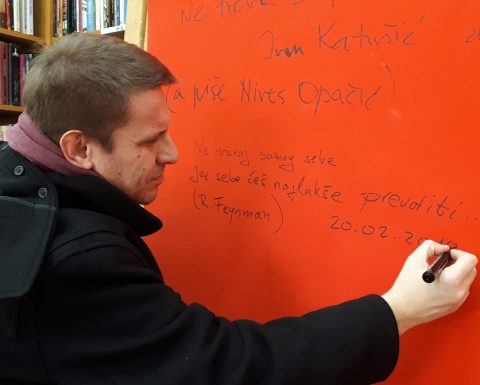 Ne treba
Ivan Katušić
(a piše Nives Opačić)
Ne varaj samog sebe
jer sebe ćeš najlakše prevariti...
(R. Feynman)
20.02.